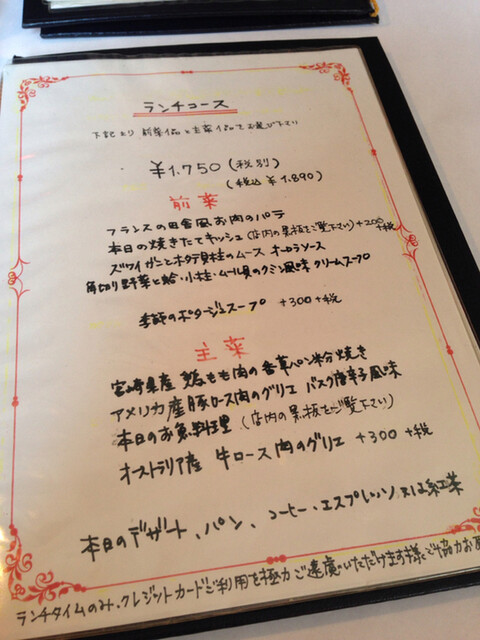 ランチコース
下記より 前菜1品と主菜1品でお選び下さい
¥1.750 (税別)
(税込 ¥1.890)
前菜
フランスの田舎風お肉のパテ
本日の焼きたてキッシュ (店内の黒板をご覧下さい) +200+税
ズワイガニとホタテ貝柱のムース オーロラソース
角切り野菜と蛤・小柱・ムール貝のクミン風味 クリームスープ
季節のポタージュスープ +300+税
主菜
宮崎県産 鶏もも肉の香草パン粉焼き
アメリカ産豚ロース肉のグリエ バスク唐辛子風味
本日のお魚料理 (店内の黒板をご覧下さい)
オーストラリア産 牛ロース肉のグリエ +300+税
本日のデザート、パン、コーヒー・エスプレッソ又は紅茶
ランチタイムのみ、クレジットカードご利用を極力ご遠慮いただけます様、ご協力お